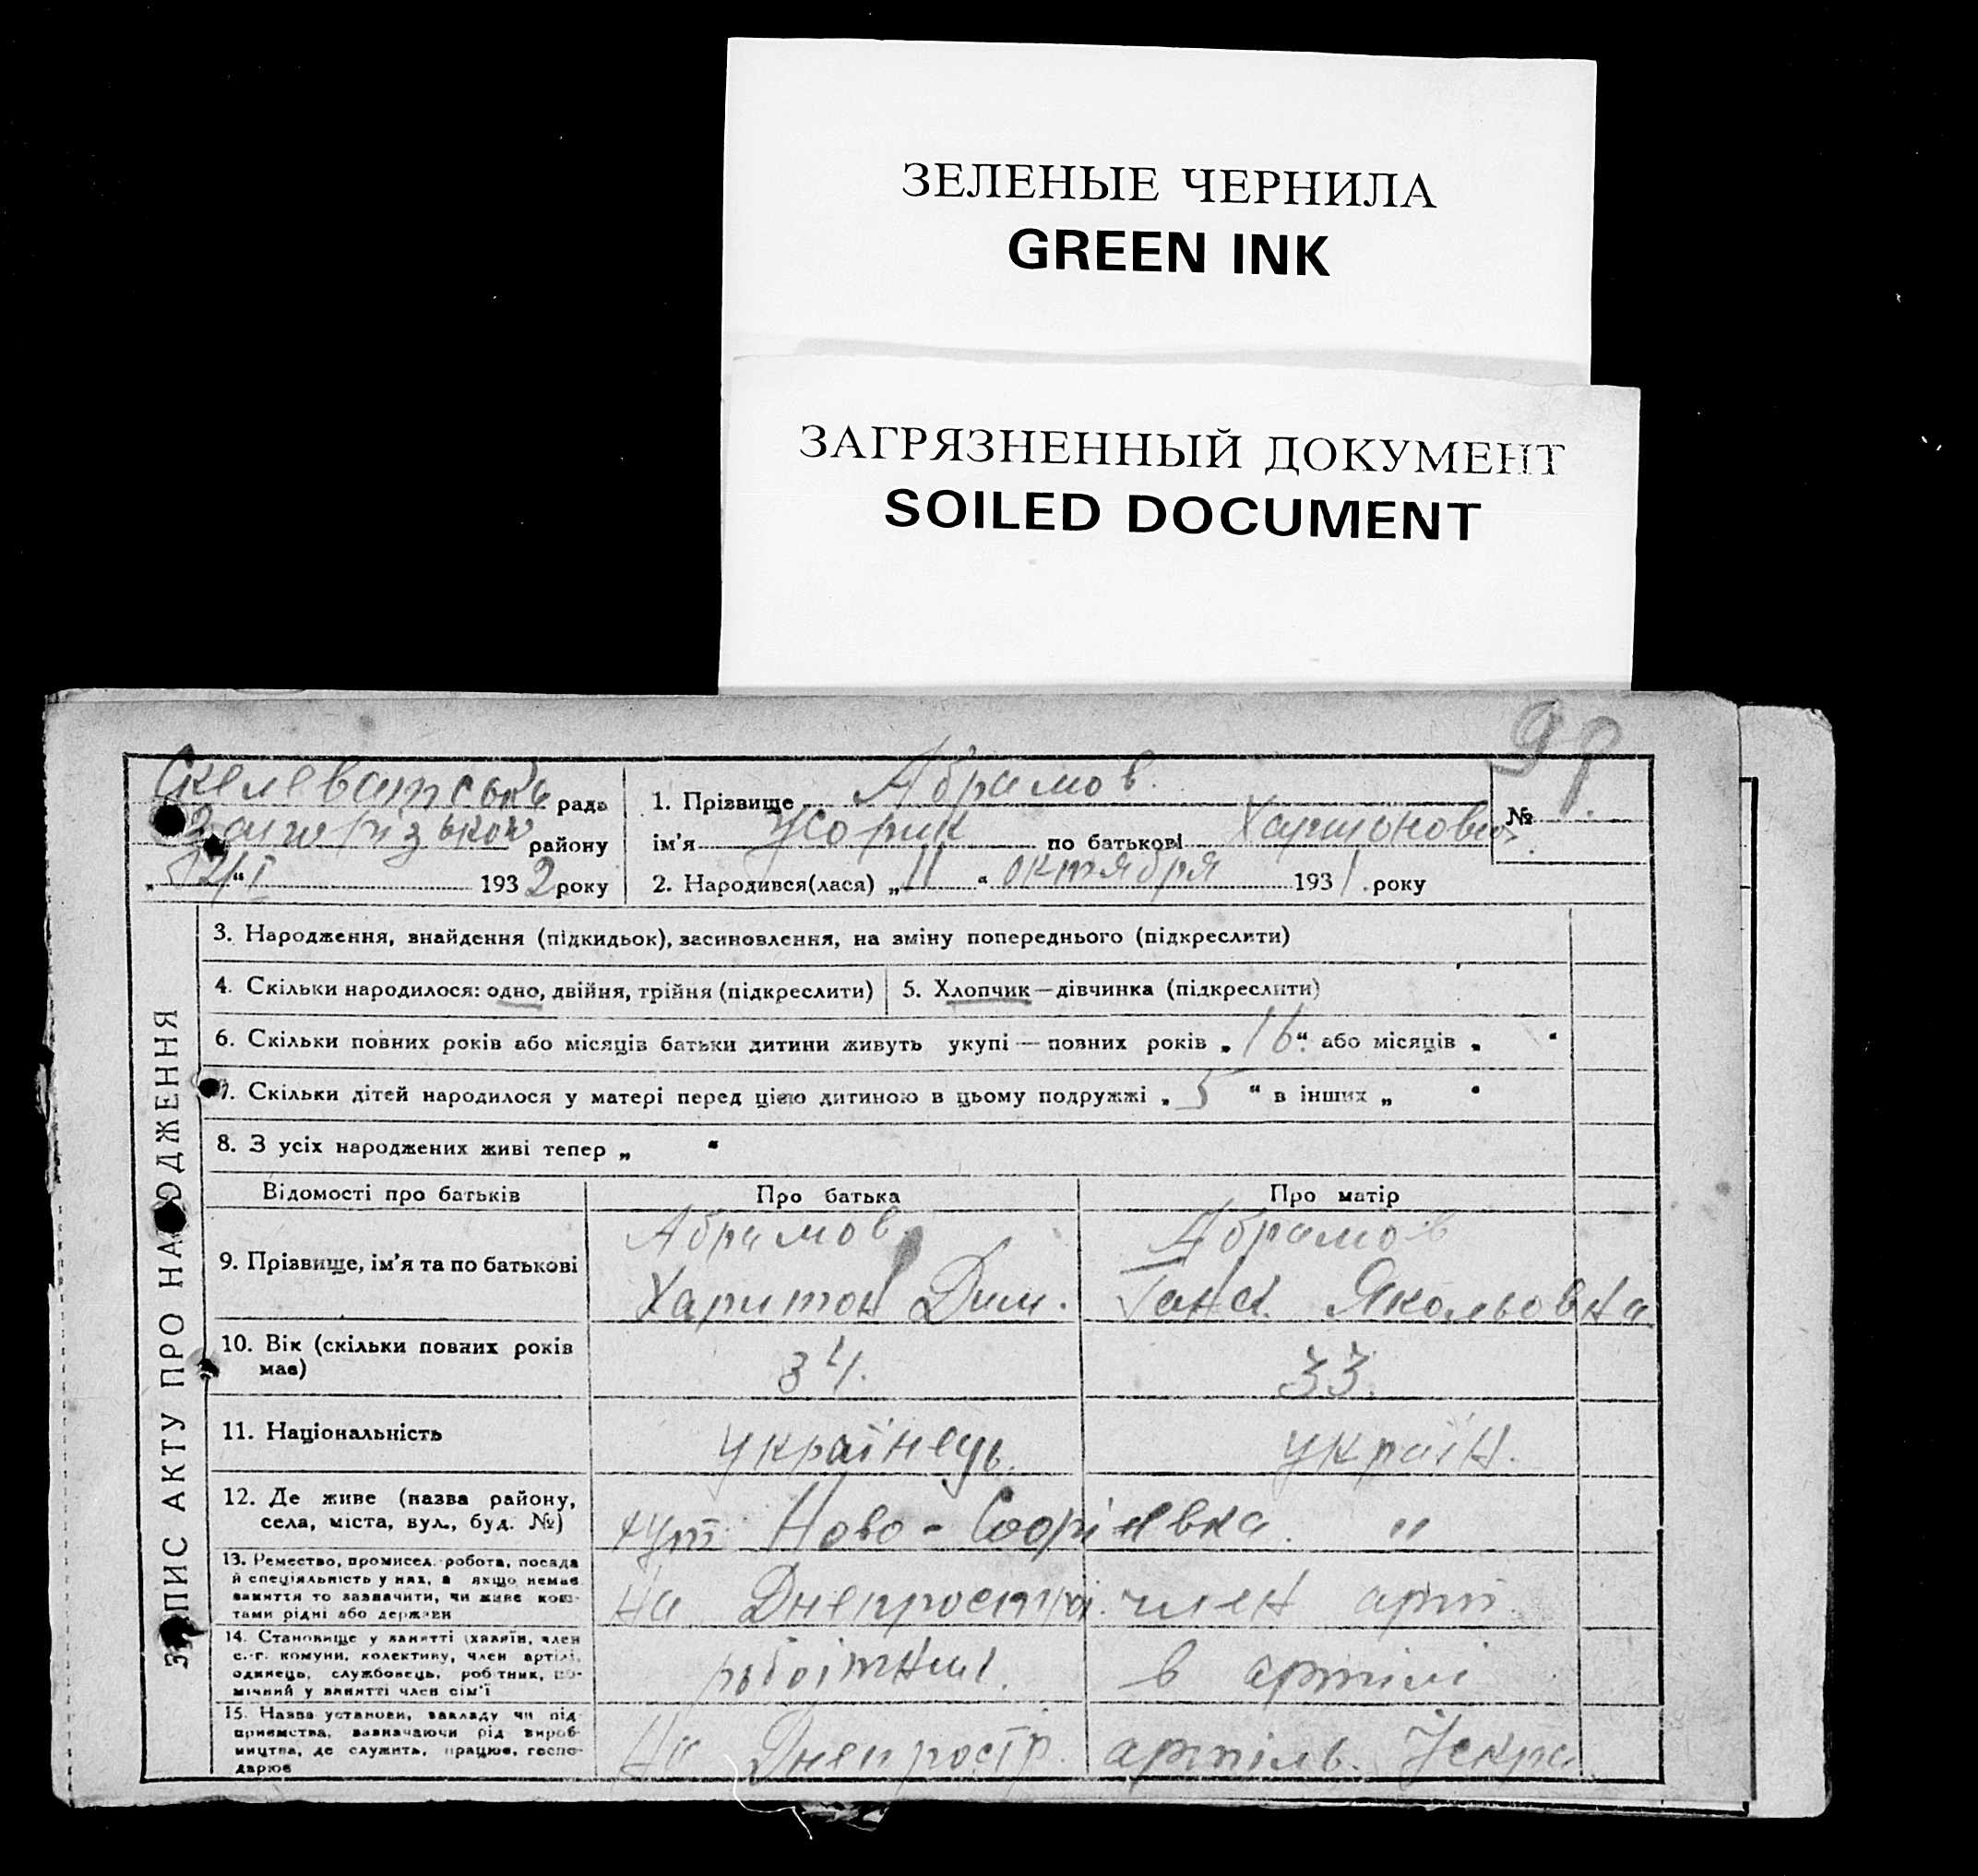 ЗЕЛЕНЫЕ ЧЕРНИЛА
GREEN INK
ЗАГРЯЗНЕННЫЙ ДОКУМЕНТ
SOILED DOCUMENT
рада
району
193 2 року
1. Прізвище Абрамов
ім'я Жорик по батькові
№
2. Народився(лася) „ 11 “ октября 193 1. року
ЗАПИС АКТУ ПРО НАРОДЖЕННЯ
3. Народження, знайдення (підкидьок), засиновлення, на зміну попереднього (підкреслити)
4. Скільки народилося: одно, двійня, трійня (підкреслити)
5. Хлопчик—дівчинка (підкреслити)
6. Скільки повних років або місяців батьки дитини живуть укупі — повних років „ 16 “ або місяців „ “
7. Скільки дітей народилося у матері перед цією дитиною в цьому подружжі „ 5 “ в інших „ “
8. З усіх народжених живі тепер „ “
Відомості про батьків
Про батька
Про матір
9. Прізвище, ім'я та по батькові
Абрамов
Харитон Дим.
Абрамов
Ганна
10. Вік (скільки повних років
має)
34.
33.
11. Національність
українець.
україн.
12. Де живе (назва району,
села, міста, вул., буд. №)
хут. Ново-Софіевка. "
13. Ремество, промисел. робота, посада
й спеціяльність у них, а якщо немає
заняття то зазначити, чи живе кош-
тами рідні або держави
на Днепрострой
член арт.
14. Становище у занятті (хазяїн, член
с.-г. комуни, колективу, член артілі,
одинець, службовець, робітник, по-
мічний у занятті член сім'ї
робітник.
в артілі
15. Назва установи, закладу чи під-
приємства, зазначаючи рід вироб-
ництва, де служить, працює, госпо-
дарює
На Днепростр.
артіль. Іскра